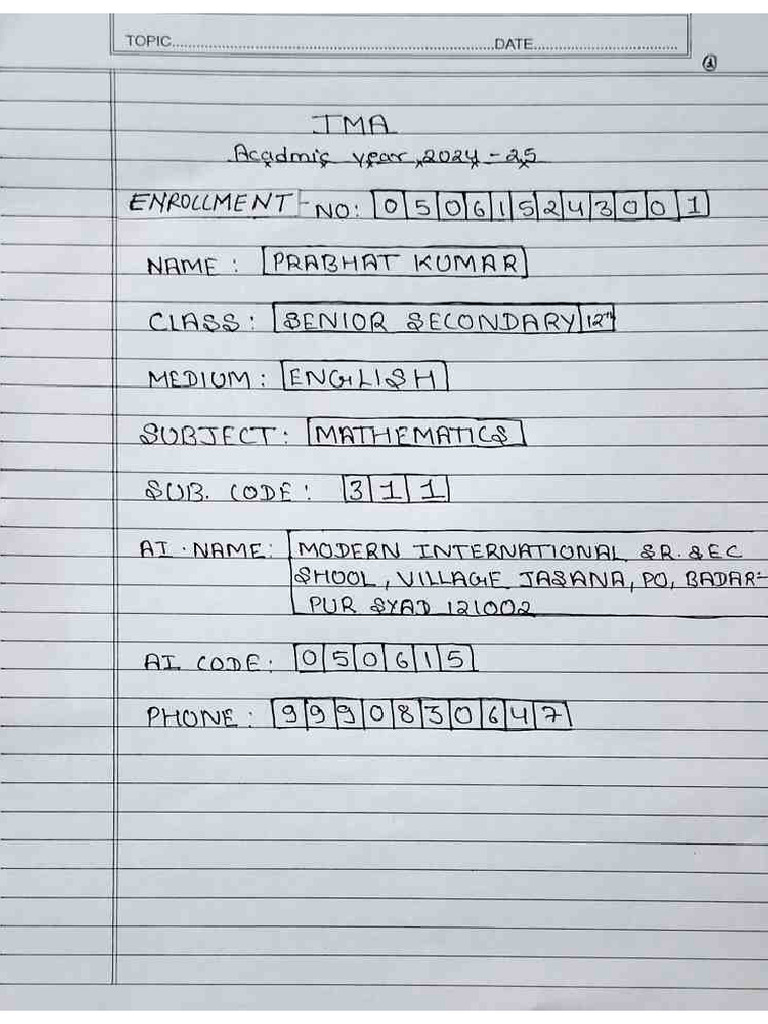 TOPIC..........................................DATE..........................
1
TMA
Acadmic year, 2024-25
ENROLLMENT-NO: 050615243001
NAME: PRABHAT KUMAR
CLASS: SENIOR SECONDARY 12th
MEDIUM: ENGLISH
SUBJECT: MATHEMATICS
SUB. CODE: 311
AI. NAME: MODERN INTERNATIONAL SR. SEC
SHOOL, VILLAGE JASANA, PO, BADAR-
PUR SYAD 121002
AI CODE: 050615
PHONE: 9990830647